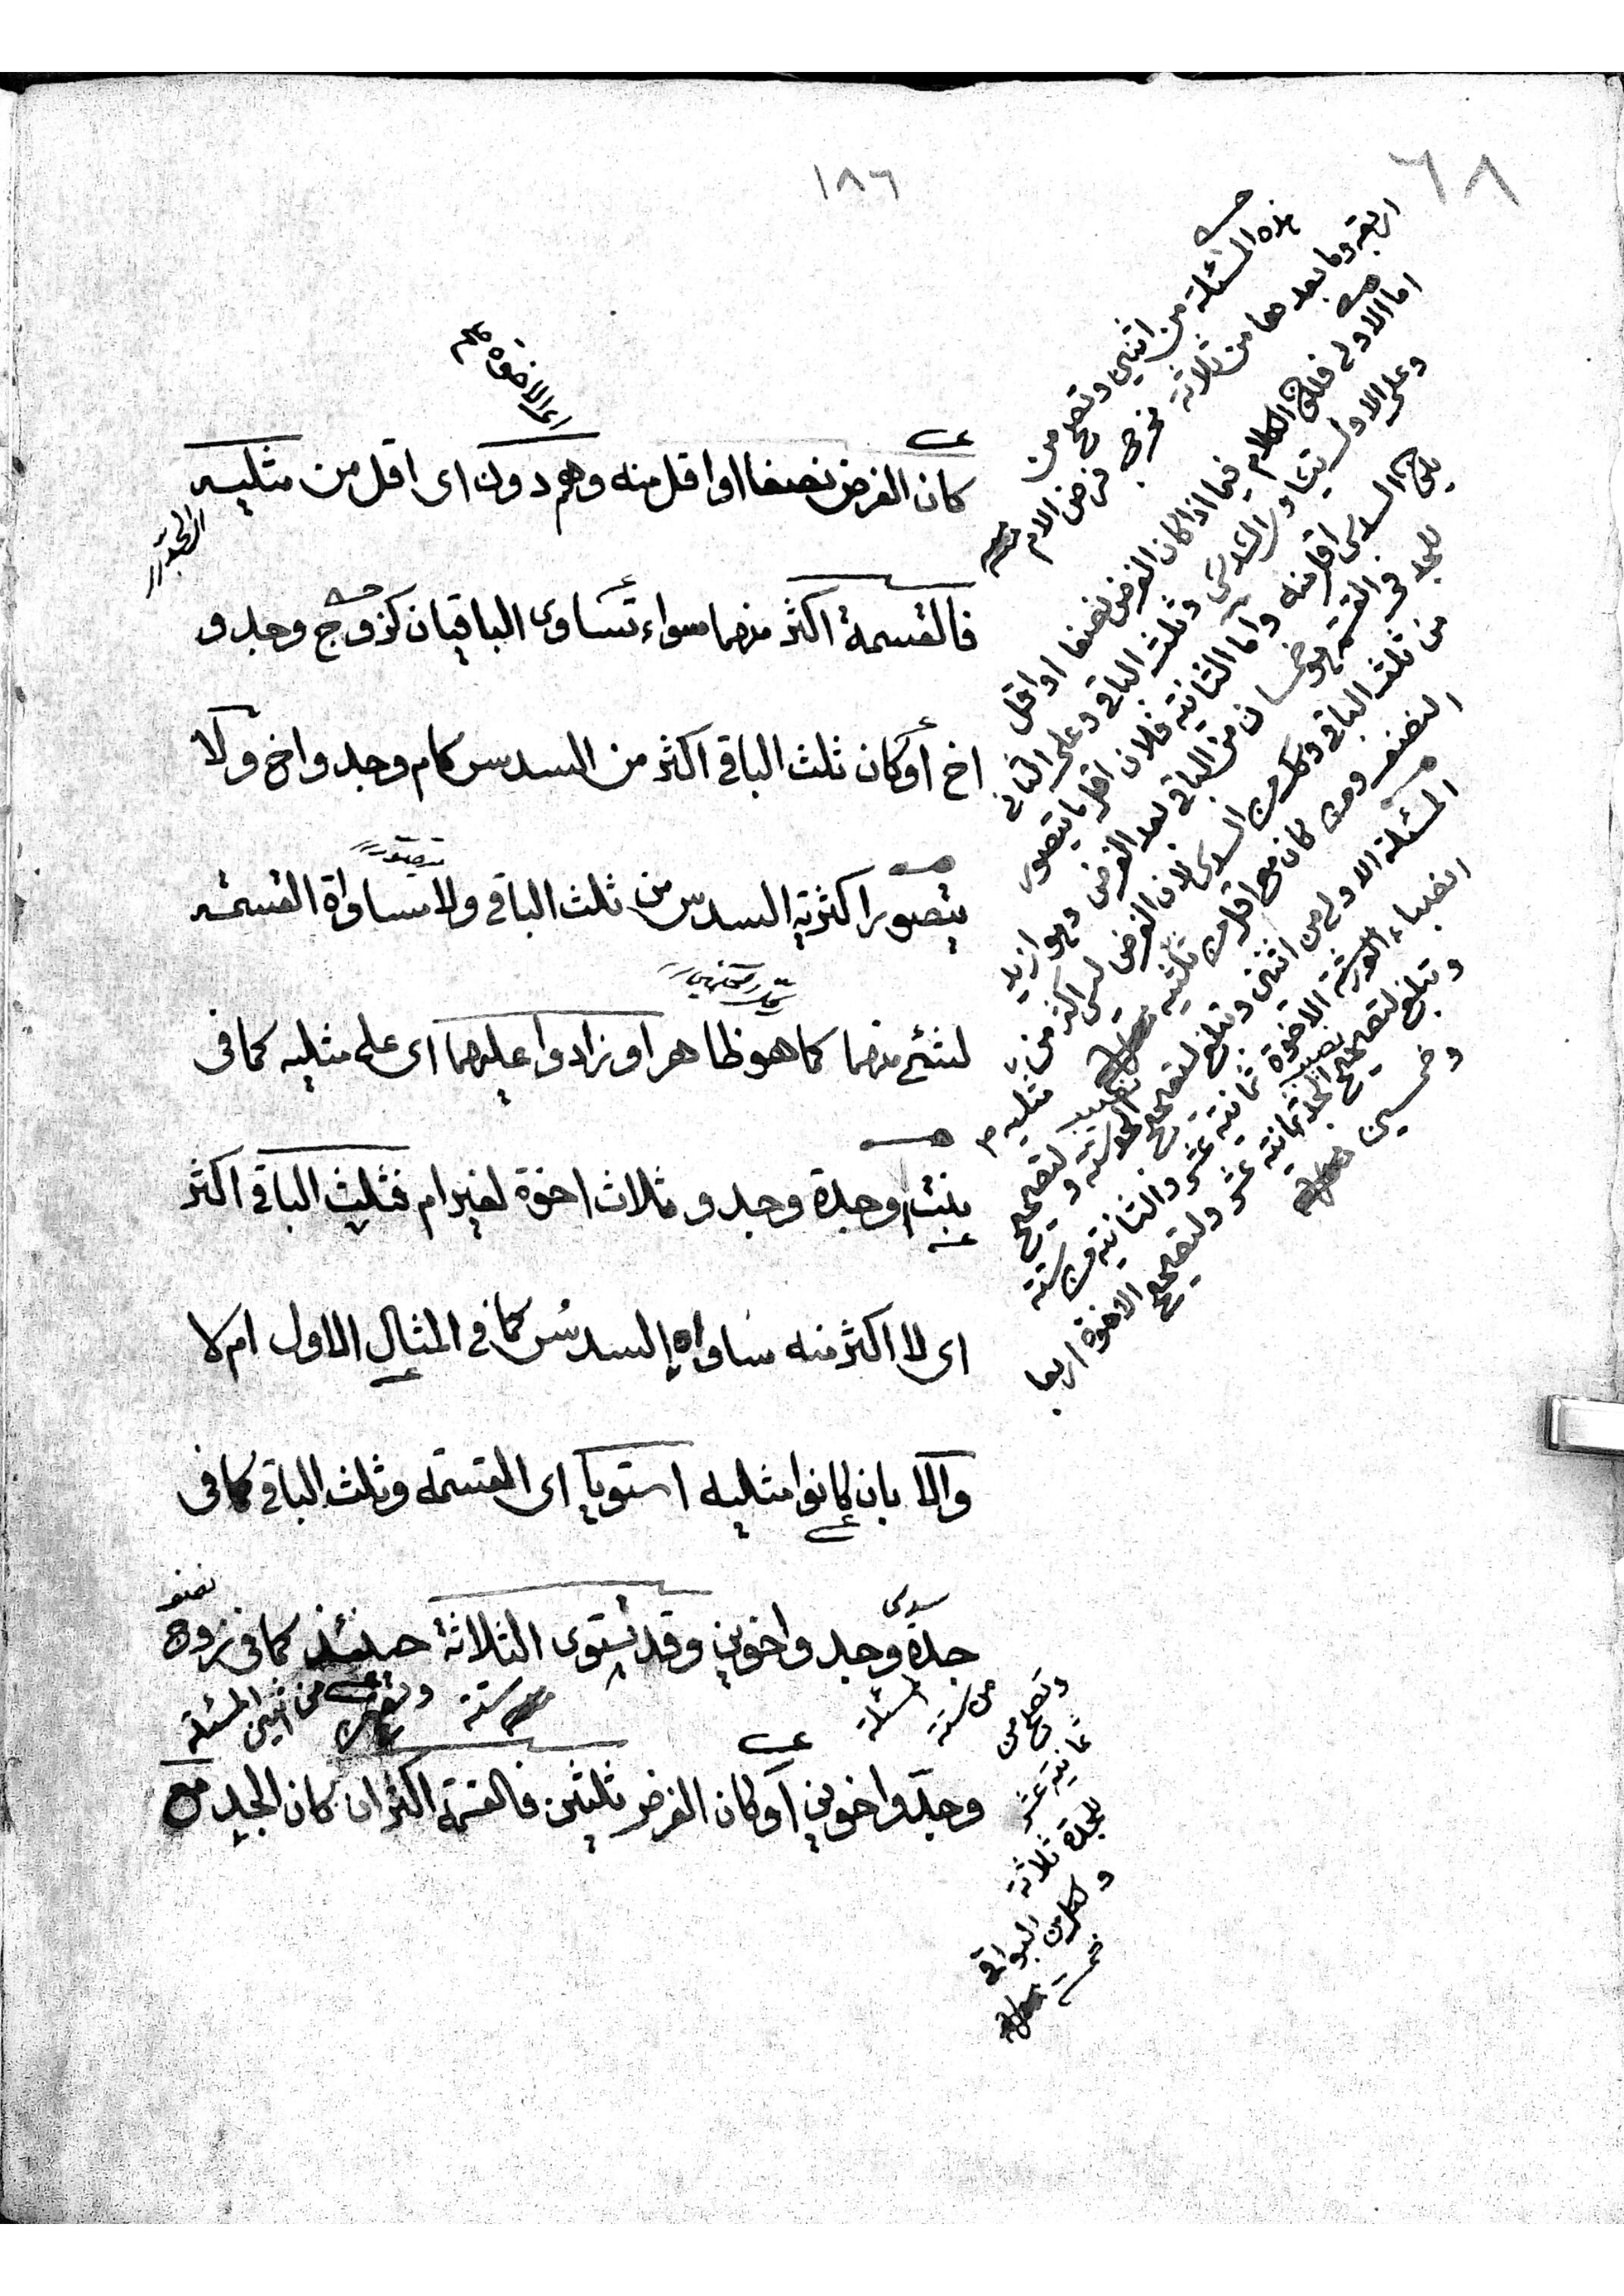 ٦٨
١٨٦
اى الاخوة
كان الفرض نصفا او اقل منه وهم دون اى اقل من مثليه
الجد
فالقسمة اكثر منهما سواء تساوى الباقيان كزوج وجد و
اخ أو كان ثلث الباقى اكثر من السدس كام وجد واخ ولا
يتصور
يتصور اكثرية السدس من ثلث الباقى ولا مساواة القسمة
لشئ منهما كما هو ظاهر او زادوا عليهما اى على مثليه كما فى
بنت وجدة وجد و ثلاث اخوة لغير ام فثلث الباقى اكثر
اى لا اكثر منه ساواه السدس كما فى المثال الاول ام لا
والا بان كانوا مثليه استويا اى القسمة وثلث الباقى كما فى
سدس
نصف
جدة وجد واخوين وقد يستوى الثلاثة حينئذ كما فى زوج
المسئلة من ستة
المسئلة من اثنين
ستة
وجد واخوين أو كان الفرض ثلثين فالقسمة اكثر ان كان الجد مع
هذه المسئلة من اثنين وتصح من
اربعة وما بعدها من ثلاثة مخرج فرض الام
اما الاولى فلان الكلام فيما اذا كان الفرض نصفا او اقل
وعلى الاول يتساوى السدس وثلث الباقى وعلى الثانى
يكون السدس اقل منه واما الثانية فلان اقل ما يتصور
للجد فى القسمة هو خمسان من الباقى بعد الفرض وهو ازيد
من ثلث الباقى وكل من السدس لان الفرض ليس اكثر من
النصف ومن كان مع اقل من مثليه
المسئلة الاولى من اثنين وتبلغ لتصحيح
انصباء الورثة الاخوة ثمانية عشر والثانية من ستة
وتبلغ لتصحيح نصيب الجد ثمانية عشر ولتصحيح الاخوة اربعا
وخمسين
وتصح من
ثمانية عشر
للجدة ثلاثة
ولكل من البواقى
خمسة